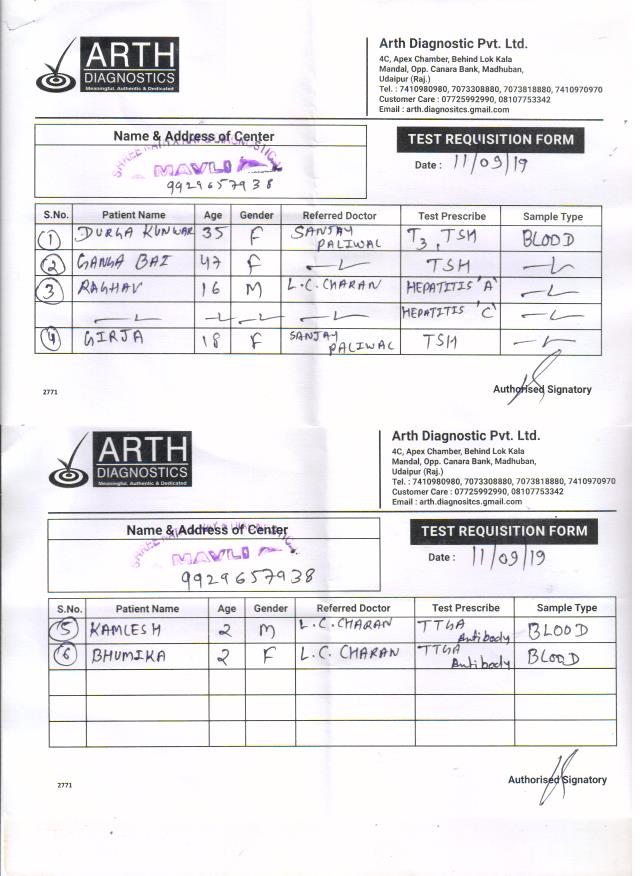 ARTH
DIAGNOSTICS
Meaningful, Authentic & Dedicated
Arth Diagnostic Pvt. Ltd.
4C, Apex Chamber, Behind Lok Kala
Mandal, Opp. Canara Bank, Madhuban,
Udaipur (Raj.)
Tel. : 7410980980, 7073308880, 7073818880, 7410970970
Customer Care : 07725992990, 08107753342
Email : arth.diagnositcs.gmail.com
Name & Address of Center
MAVLI
9929657938
TEST REQUISITION FORM
Date : 11/09/19
S.No. Patient Name Age Gender Referred Doctor Test Prescribe Sample Type
1 DURGA KUNWAR 35 F SANJAY PALIWAL T3, TSH BLOOD
2 GANGA BAI 47 F TSH
3 RAGHAV 16 M L.C. CHARAN HEPATITIS 'A'
HEPATITIS 'C'
4 GIRJA 18 F SANJAY PALIWAL TSH
2771
Authorised Signatory
ARTH
DIAGNOSTICS
Meaningful, Authentic & Dedicated
Arth Diagnostic Pvt. Ltd.
4C, Apex Chamber, Behind Lok Kala
Mandal, Opp. Canara Bank, Madhuban,
Udaipur (Raj.)
Tel. : 7410980980, 7073308880, 7073818880, 7410970970
Customer Care : 07725992990, 08107753342
Email : arth.diagnositcs.gmail.com
Name & Address of Center
MAVLI
9929657938
TEST REQUISITION FORM
Date : 11/09/19
S.No. Patient Name Age Gender Referred Doctor Test Prescribe Sample Type
5 KAMLESH 2 M L.C. CHARAN TTGA Antibody BLOOD
6 BHUMIKA 2 F L.C. CHARAN TTGA Antibody BLOOD
2771
Authorised Signatory